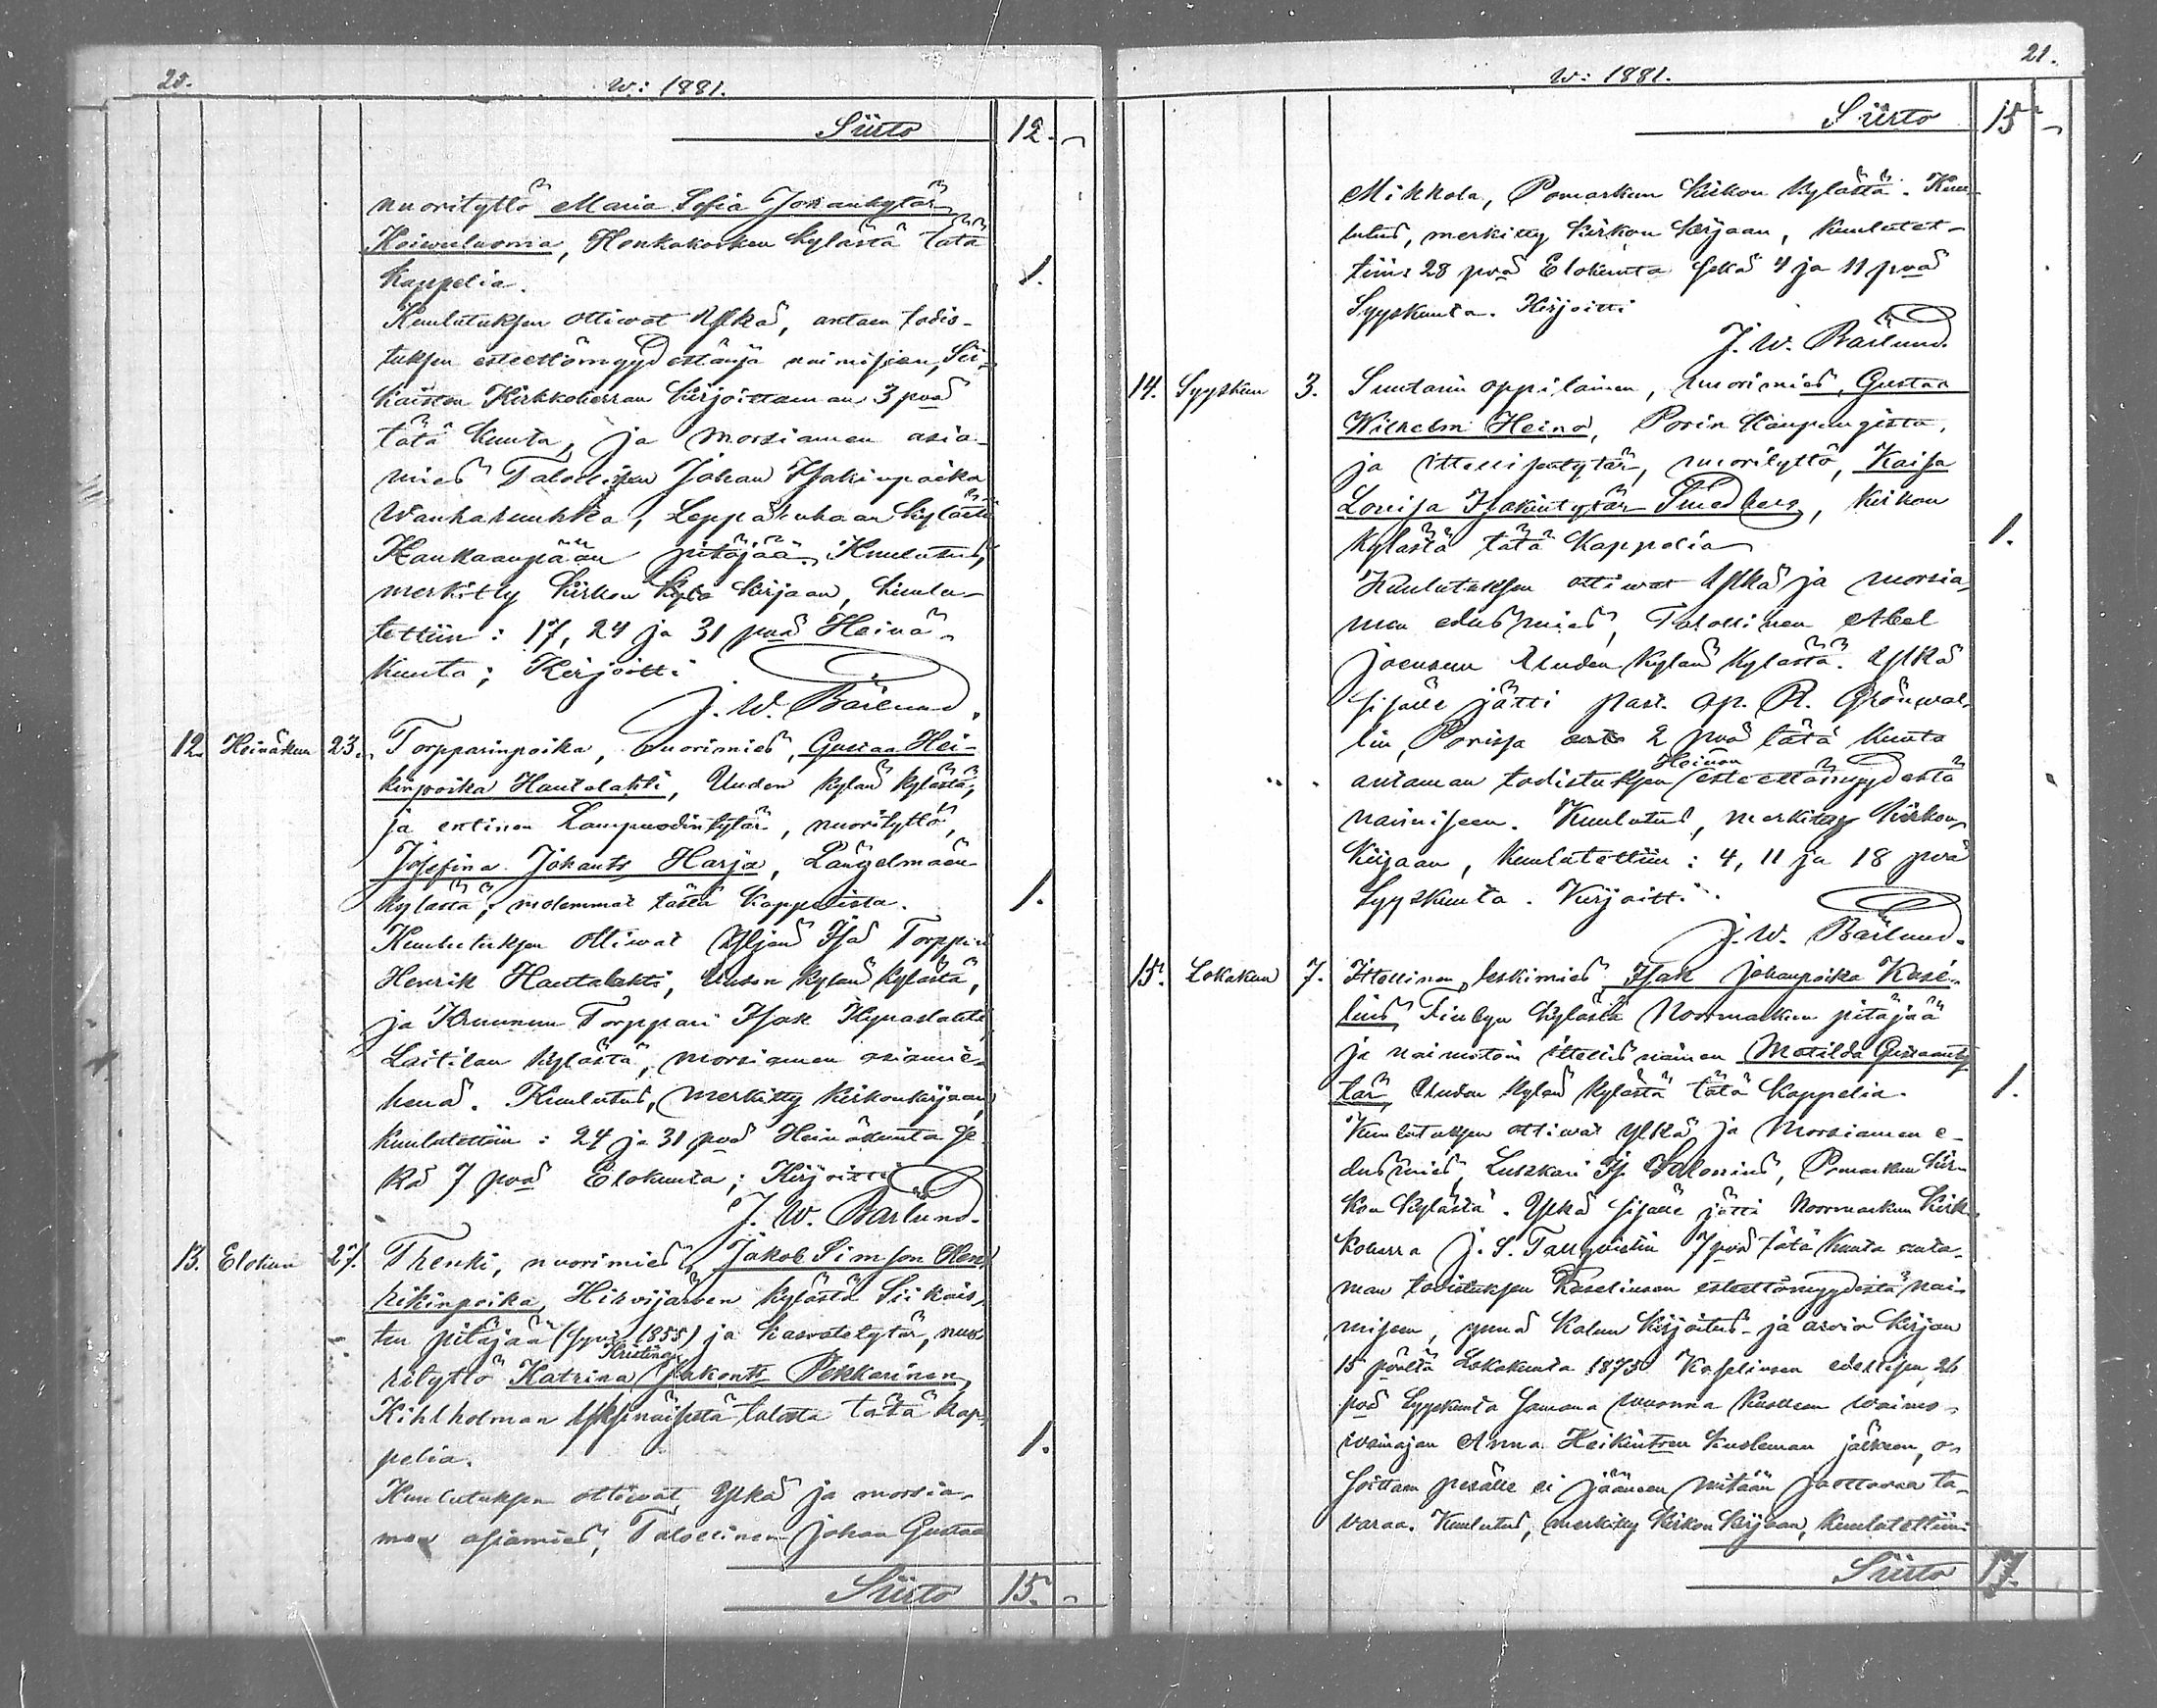 20.
w: 1881.
Siirto 12.
nuorityttö Maria Sofia Johankytär
Koiwuluoma, Honkakosken kylästä tätä
Kappelia. 1.
Kuulutuksen ottiwat Ylkä, antaen todis-
tuksen esteettömyydestänsä naimiseen, Sii-
kaisten Kirkkoherran kirjoittaman 3 pvä
tätä kuuta, ja morsiamen asia-
mies Talollisen Johan Isakinpoika
Wanhakuuhka, Leppäruhaan kylästä
Kankaanpään pitäjää. Kuulutus,
merkitty Kirkon kirjaan, kuulu-
tettiin: 17, 24 ja 31 pvä Heinä-
kuuta; Kirjoitti
J. W. Bärlund.
12. Heinäkuu 23. Torpparinpoika, nuorimies, Gustaa Hei-
kinpoika Hautalahti, Uuden kylän kylästä,
ja entinen Lampuodintytär, nuorityttö,
Josefina Johants Harja, Längelmäen
kylästä; molemmat tästä Kappelista. 1.
Kuulutuksen ottiwat Yljän Isä Torppari
Henrik Hautalahti, Uuden kylän kylästä,
ja Kruunun Torppari Isak
Laitilan kylästä, morsiamen asiamie-
henä. Kuulutus, merkitty kirkonkirjaan,
kuulutettiin: 24 ja 31 pvä Heinäkuuta se-
kä 7 pvä Elokuuta; Kirjoitti
J. W. Bärlund.
13. Elokuu 27. Threnki, nuorimies, Jakob Simson Hen-
rikinpoika, Hirvijärven kylästä Siikais-
ten pitäjää (synt. 1855) ja kasvatetytär, nuo-
Kristina
rityttö Katrina Jakonts Pekkarinen,
Kihlholman Yksinäisestä talosta tätä kap-
pelia. 1.
Kuulutuksen ottiwat Ylkä ja morsia-
men asiamies, Talollinen Johan Gustaa
Siirto 15.
21.
w: 1881.
Siirto 15
Mikkola, Pomarkun kirkon kylästä. Kuu-
lutus, merkitty kirkon kirjaan, kuulutet-
tiin: 28 pvä Elokuuta sekä 4 ja 11 pvä
Syyskuuta. Kirjoitti
J. W. Bärlund.
14. Syyskuu 3. Suutarin oppilainen, nuorimies, Gustaa
Wilhelm Heino, Porin Kaupungista,
ja ittellisentytär, nuorityttö, Kaisa
Lovisa Isakintytär Smedberg, kirkon
kylästä tätä Kappelia 1.
Kuulutuksen ottiwat Ylkä ja morsia-
men edusmies, Talollinen Abel
Joensuu Uuden kylän kylästä. Ylkä
sisälle jätti past. ap. R. Grönwal-
lin, Porissa 2 pvä tätä kuuta
Heinon
antaman todistuksen esteettömyydestä
naimiseen. Kuulutus, merkitty kirkon
kirjaan, kuulutettiin: 4, 11 ja 18 pvä
Syyskuuta. Kirjoitti.
J. W. Bärlund.
15. Lokakuu 7. Ittellinen, leskimies, Isak Johanpoika Kase-
lius, Finbyn kylästä Noormarkun pitäjää
ja naimatoin ittellisnainen Matilda Gustaanty-
tär, Uuden kylän kylästä tätä Kappelia. 1.
Kuulutuksen ottiwat Ylkä ja Morsiamen e-
dusmies, Lukkari Is. Salonius, Pomarkun kir-
kon kylästä. Ylkä sisälle jätti Noormarkun kirk-
koherra J. S. Tallqvistin 7 pvä tätä kuuta anta-
man todistuksen Kaseliuson esteettömyydestä nai-
miseen, ynnä kalun kirjoitus- ja arvio kirjan
15 päältä Lokakuuta 1875 Kaseliusen edellisen, 26
pvä Syyskuuta samana vuonna kuolleen vaimo-
vainajan Anna Heikintren kuoleman jälkeen, o-
soittaen pesälle ei jääneen mitään jaettavaa ta-
varaa. Kuulutus, merkitty kirkon kirjaan, kuulutettiin
Siirto 17.